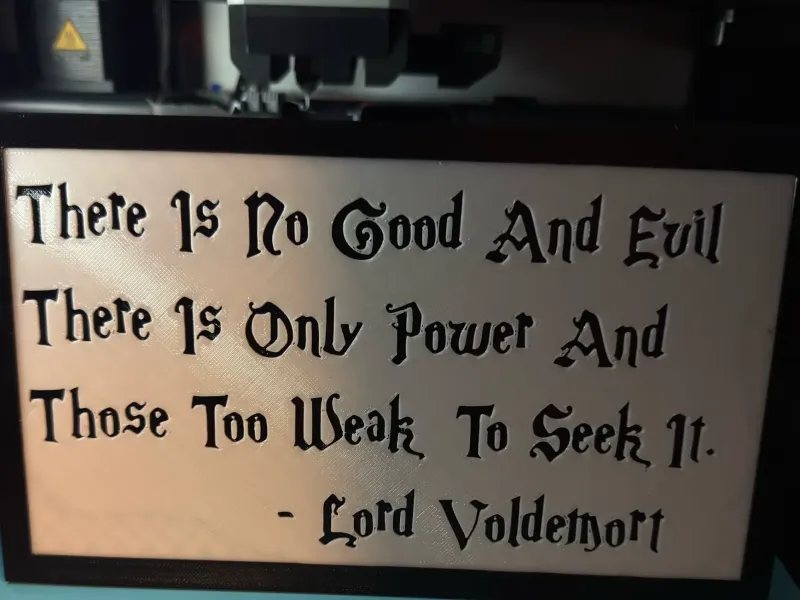 There Is No Good And Evil
There Is Only Power And
Those Too Weak To Seek It.
- Lord Voldemort